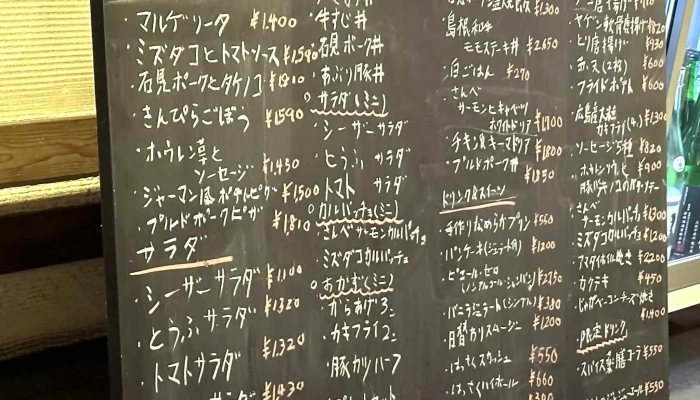 ・マルゲリータ ¥1.400
・ミズダコとトマトソース ¥1,590
・石見ポークとタケノコ ¥1810
・きんぴらごぼう ¥1590
・ホウレン草と
ソーセージ ¥1.450
・ジャーマン風ポテトピザ ¥1,500
・プルドポークピザ ¥1,810
サラダ
・シーザーサラダ ¥1,100
・とうふサラダ ¥1,320
・トマトサラダ ¥1.320
サラダ ¥1,430
・牛すじ丼
・石見ポーク丼
・あぶり豚丼
サラダ(ミニ)
・シーザーサラダ
・とうふ サラダ
・トマト サラダ
カルパッチョ(ミニ)
・さんべサーモンカルパッチョ
・ミズダコカルパッチョ
おかず(ミニ)
・からあげ3コ
・カキフライ2コ
・豚カツハーフ
¥1,300
・島根和牛
モモステーキ丼 ¥2,650
・白ごはん ¥270
・さんべ
サーモンとキャベツ
ホワイトドリア ¥1,700
・チキン&キーマドリア ¥1800
・プルドポーク丼 ¥1,350
ドリンク&スイーツ
・手作りなめらかプリン ¥550
・パンケーキ(ジェラート付) ¥1200
・ピエール・ゼロ
(ノンアルコールシャンパン) ¥2750
・バニラジェラート(シングル) ¥380
・日替カリスムージー ¥1200
・はっさくスカッシュ ¥550
・はっさくハイボール ¥660
・ヤゲン軟骨唐揚げ ¥820
・とり唐揚げ ¥930
・赤天(2枚) ¥600
・フライドポテト ¥600
・広島産大粒
カキフライ(4コ) ¥1300
・ソーセージ5種 ¥820
・ホウレンソウと ¥900
・さんべ
サーモンカルパッチョ ¥1300
・ミズダコカルパッチョ ¥1200
¥2200
・カクテキ ¥450
・じゃがベーコンチーズ焼き
¥1,400
限定ドリンク
・スパイス薬膳コーラ ¥550
¥550